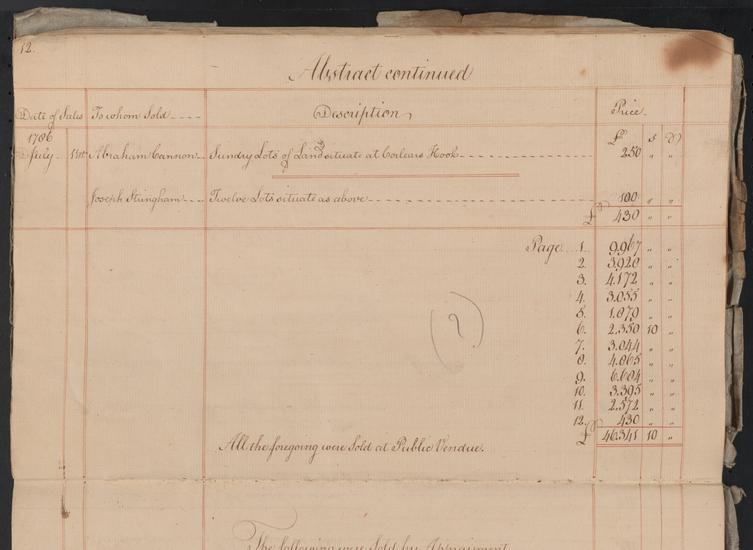 12.
Abstract continued
Date of Sales To whom Sold Description Price
1786 £ s D
July 11th Abraham Cannon Sundry Lots of Land situate at Corlears Hook 250 " "
Joseph Stringham Twelve Lots situate as above 180 " "
£ 430 " "
Page 1. 9,967 " "
2. 3,928 " "
3. 4,172 " "
4. 3,055 " "
5. 1,879 " "
6. 2,350 10 "
7. 3,044 " "
8. 4,865 " "
9. 6,684 " "
10. 3,395 " "
11. 2,572 " "
12. 430 " "
£ 46,341 10 "
(2)
All the foregoing were Sold at Public Vendue.
The following were Sold by Appraisment